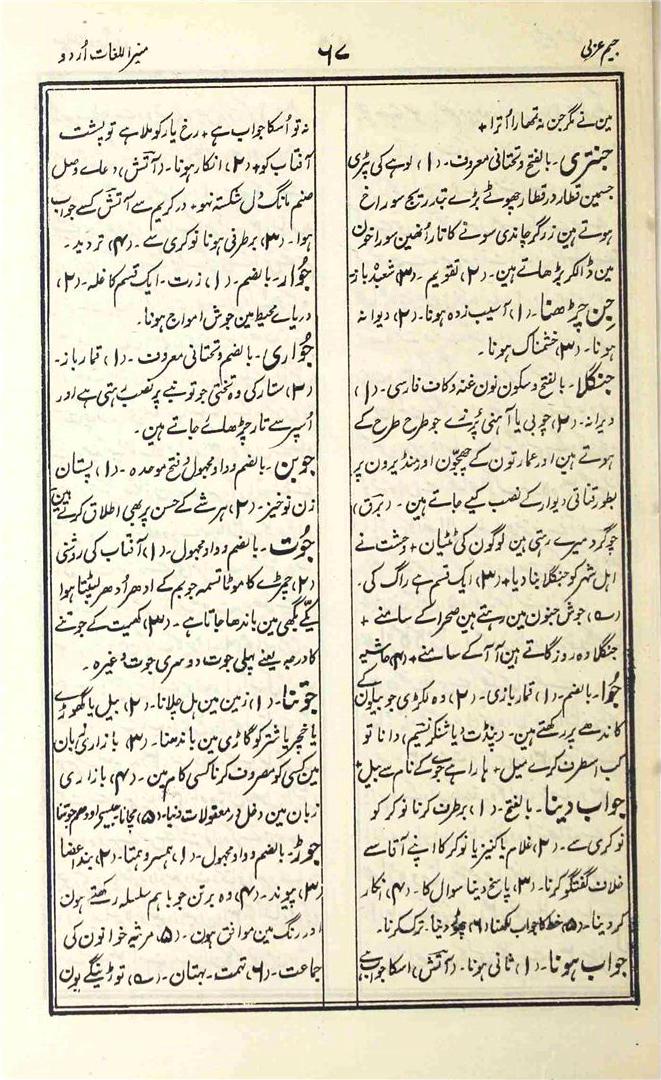 جیم عربی
۶۷
منیر اللغات اُردو
مین نے مگر جن نہ تمھارا اُترا +
جنتری۔ بالفتح و تحتانی معروف۔ (۱) لوہے کی پٹری
جسمین قطار در قطار چھوٹے بڑے بتدریج سوراخ
ہوتے ہین زرگر چاندی سونے کا تار اُنھین سوراخون
مین ڈالکر بڑھاتے ہین۔ (۲) تقویم۔ (۳) شعبدہ باز
جن چڑھنا۔ (۱) آسیب زدہ ہونا۔ (۲) دیوانہ
ہونا۔ (۳) خشمناک ہونا۔
جنگلا۔ بالفتح و سکون نون غنہ و کاف فارسی۔ (۱)
ویرانہ۔ (۲) چوبی یا آہنی پُرزے جو طرح طرح کے
ہوتے ہین اور عمارتون کے چھجون اور منڈیرون پر
بطور قناتی دیوار کے نصب کیے جاتے ہین۔ (برق)
چوگرد میرے رہتی ہین لوگون کی ٹٹیان + وحشت نے
اہل شہر کو جنگلا بنا دیا + (۳) ایک قسم ہے راگ کی۔
(ے) جوش جنون مین رہتے ہین صحرا کے سامنے +
جنگلا وہ روز گاتے ہین آ آ کے سامنے + (۴) حاشیہ
جُوا۔ بالضم۔ (۱) قمار بازی۔ (۲) وہ لکڑی جو بیلون کے
کاندھے پر رکھتے ہین۔ (پنڈت دیا شنکر نسیم) دانا تو
کب اسطرف کرے میل + ہارا ہے جوے کے نام سے بیل +
جواب دینا۔ بالفتح۔ (۱) برطرف کرنا نوکر کو
نوکری سے۔ (۲) غلام یا کنیز یا نوکر کا اپنے آقا سے
خلاف گفتگو کرنا۔ (۳) پاسخ دینا سوال کا۔ (۴) انکار
کر دینا۔ (۵) خط کا جواب لکھنا (۶) چھوڑ دینا۔ ترک کرنا۔
جواب ہونا۔ (۱) ثانی ہونا۔ (آتش) اسکا جواب ہے
نہ تو اُسکا جواب ہے + رخ یار کو ملا ہے تو پشت
آفتاب کو + (۲) انکار ہونا۔ (آتش) دعاے وصل
صنم مانگ دل شکستہ نہو + در کریم سے آتش کسے جواب
ہوا۔ (۳) برطرفی ہونا نوکری سے۔ (۴) تردید۔
جُوار۔ بالضم۔ (۱) زرت۔ ایک قسم کا غلہ۔ (۲)
دریاے محیط مین جوش امواج ہونا۔
جُواری۔ بالضم و تحتانی معروف۔ (۱) قمار باز۔
(۲) ستار کی وہ تختی جو تونبے پر نصب ہوتی ہے اور
اُسپر سے تار چڑھائے جاتے ہین۔
جوبن۔ بالضم و واو مجہول و فتح موحدہ۔ (۱) پستان
زن نوخیز۔ (۲) ہر شے کے حسن پر بھی اطلاق کرتے ہین
جُوت۔ بالضم و واو مجہول۔ (۱) آفتاب کی روشنی
(۲) چمڑے کا موٹا تسمہ جو بم کے ادھر اُدھر لپٹا ہوا
یکے بگھی مین باندھا جاتا ہے۔ (۳) کھیت کے جوتنے
کا درجہ یعنے پہلی جوت دوسری جوت وغیرہ۔
جوتنا۔ (۱) زمین مین ہل چلانا۔ (۲) بیل یا گھوڑے
یا خچر یا شتر کو گاڑی مین باندھنا۔ (۳) بازاری زبان
مین کسی کو مصروف کرنا کسی کام مین۔ (۴) بازاری
زبان مین دخل در معقولات دنیا۔ (۵) مچانا جیسے اودھم جوتنا
جوڑ۔ بالضم و واو مجہول۔ (۱) ہمسر و ہمتا۔ (۲) بند اعضا
(۳) پیوند۔ (۴) وہ برتن جو باہم سلسلہ رکھتے ہون
اور رنگ مین موافق ہون۔ (۵) مرثیہ خوانون کی
جماعت۔ (۶) تہمت۔ بہتان۔ (ے) توڑینگے یون